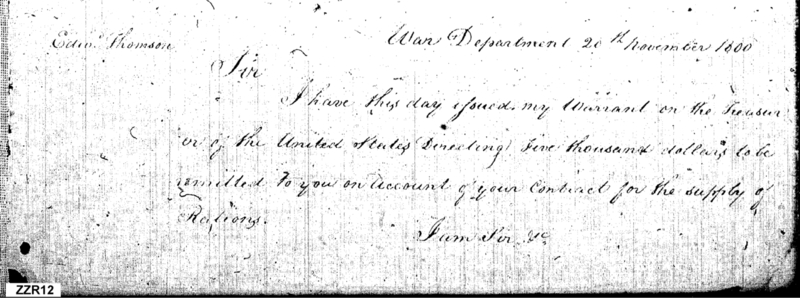 War Department 20th November 1800
Edwd. Thomson
Sir
I have this day issued my Warrant on the Treasur
er of the United States Directing five thousand dollars to be
remitted to you on account of your Contract for the supply of
Rations.
I am Sir &c
ZZR12